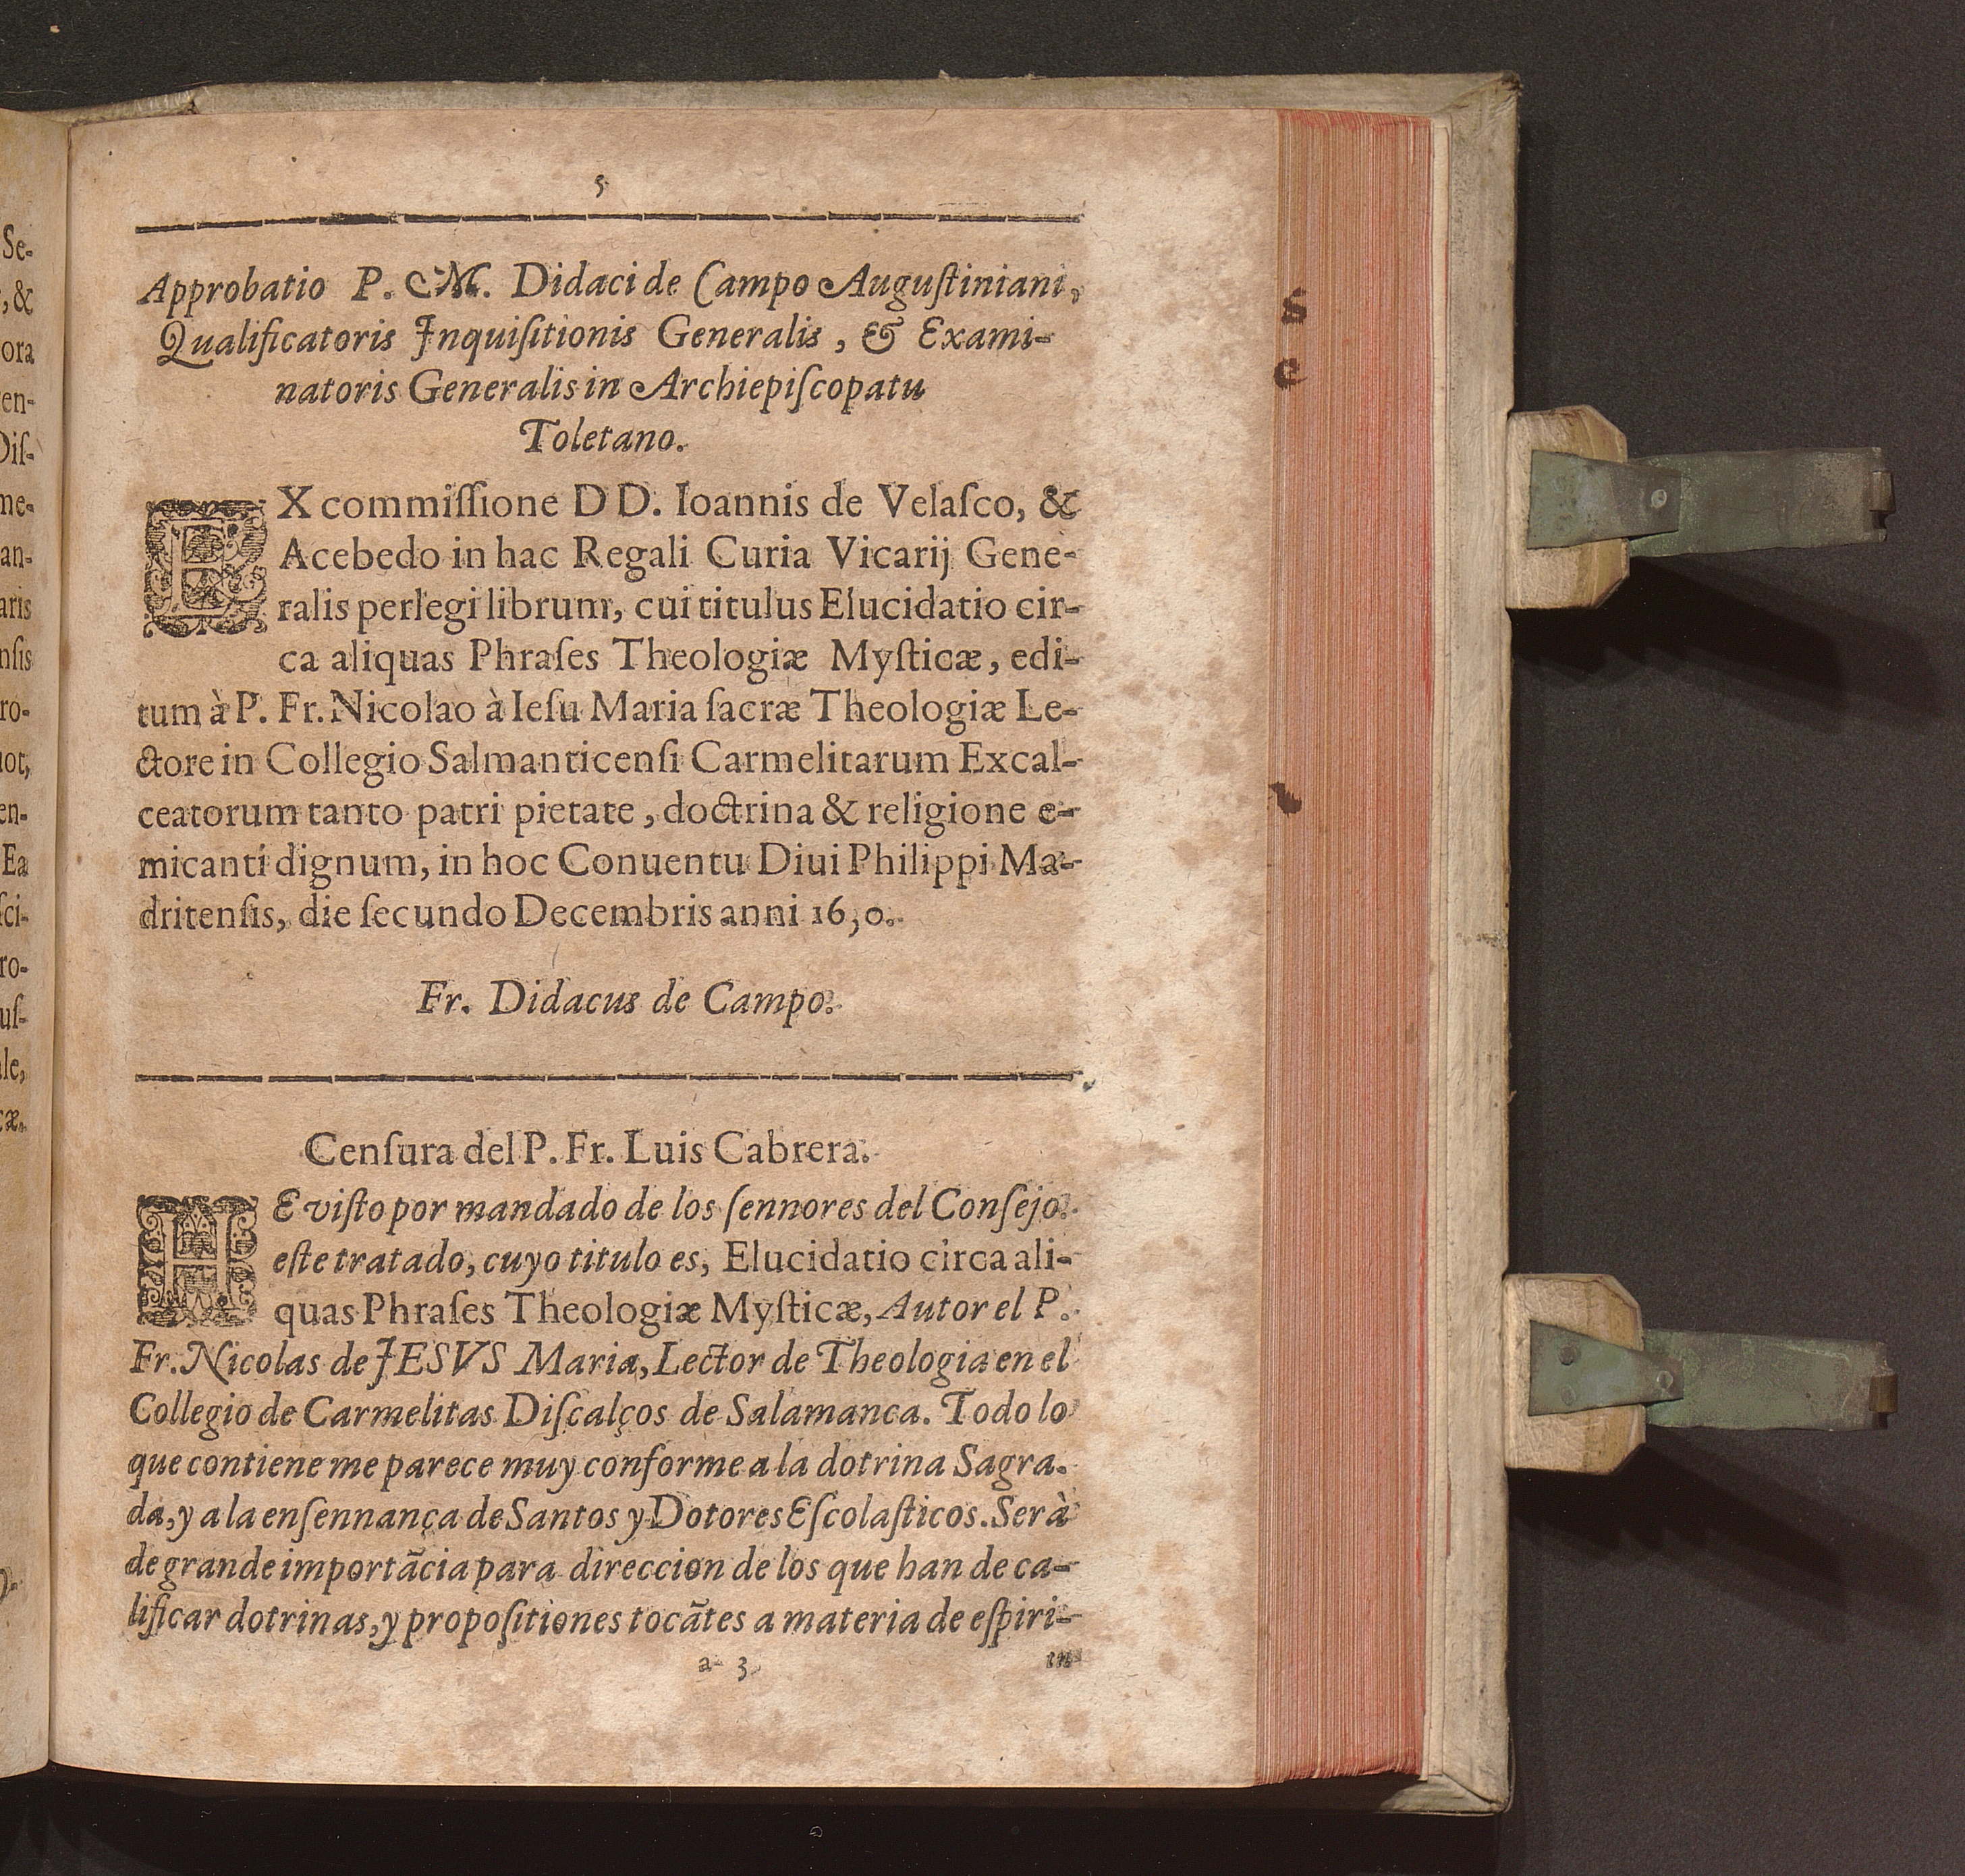 5
Approbatio P. M. Didaci de Campo Auguſtiniani,
Qualificatoris Inquiſitionis Generalis, & Exami-
natoris Generalis in Archiepiſcopatu
Toletano.
EX commiſſione D D. Ioannis de Velaſco, &
Acebedo in hac Regali Curia Vicarij Gene-
ralis perlegi librum, cui titulus Elucidatio cir-
ca aliquas Phraſes Theologiæ Myſticæ, edi-
tum à P. Fr. Nicolao à Ieſu Maria ſacræ Theologiæ Le-
ctore in Collegio Salmanticenſi Carmelitarum Excal-
ceatorum tanto patri pietate, doctrina & religione e-
micanti dignum, in hoc Conuentu Diui Philippi Ma-
dritenſis, die ſecundo Decembris anni
Fr. Didacus de Campo.
Cenſura del P. Fr. Luis Cabrera.
HE viſto por mandado de los ſennores del Conſejo
eſte tratado, cuyo titulo es, Elucidatio circa ali-
quas Phraſes Theologiæ Myſticæ, Autor el P.
Fr. Nicolas de JESVS Maria, Lector de Theologia en el
Collegio de Carmelitas Diſcalços de Salamanca. Todo lo
que contiene me parece muy conforme a la dotrina Sagra-
da, y a la enſennança de Santos y Dotores Eſcolaſticos. Serà
de grande importãcia para direccion de los que han de ca-
lificar dotrinas, y propoſitiones tocãtes a materia de eſpiri-
a 3
Se-
, &
ora
en-
Diſ-
me-
an-
aris
nſis
ro-
en-
Ea
ſci-
ro-
uſ-
le,